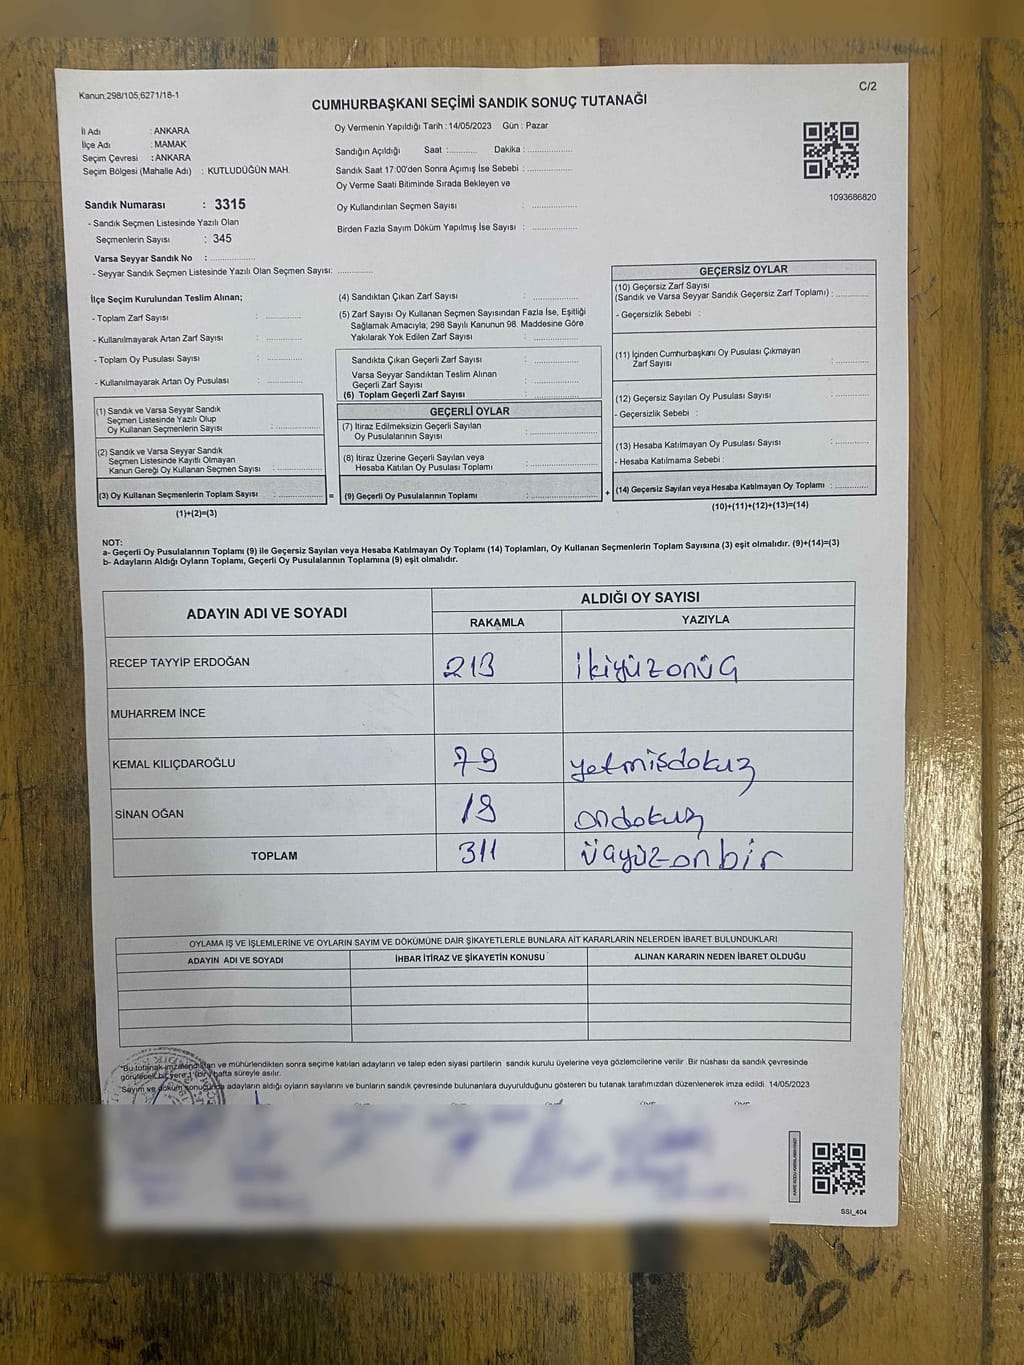 Kanun:298/105,6271/18-1
C/2
CUMHURBAŞKANI SEÇİMİ SANDIK SONUÇ TUTANAĞI
İl Adı : ANKARA
İlçe Adı : MAMAK
Seçim Çevresi : ANKARA
Seçim Bölgesi (Mahalle Adı) : KUTLUDÜĞÜN MAH.
Oy Vermenin Yapıldığı Tarih : 14/05/2023 Gün : Pazar
Sandığın Açıldığı Saat :.......... Dakika : ................
Sandık Saat 17:00'den Sonra Açımış İse Sebebi : ................
Oy Verme Saati Bitiminde Sırada Bekleyen ve
Oy Kullandırılan Seçmen Sayısı : ................
Birden Fazla Sayım Döküm Yapılmış İse Sayısı : ................
1093686820
Sandık Numarası : 3315
- Sandık Seçmen Listesinde Yazılı Olan
Seçmenlerin Sayısı : 345
Varsa Seyyar Sandık No : ................
- Seyyar Sandık Seçmen Listesinde Yazılı Olan Seçmen Sayısı: ............
İlçe Seçim Kurulundan Teslim Alınan;
- Toplam Zarf Sayısı : ............
- Kullanılmayarak Artan Zarf Sayısı : ............
- Toplam Oy Pusulası Sayısı : ............
- Kullanılmayarak Artan Oy Pusulası : ............
(1) Sandık ve Varsa Seyyar Sandık
Seçmen Listesinde Yazılı Olup
Oy Kullanan Seçmenlerin Sayısı : ................
(2) Sandık ve Varsa Seyyar Sandık
Seçmen Listesinde Kayıtlı Olmayan
Kanun Gereği Oy Kullanan Seçmen Sayısı : ................
(3) Oy Kullanan Seçmenlerin Toplam Sayısı : ................ =
(1)+(2)=(3)
(4) Sandıktan Çıkan Zarf Sayısı : ................
(5) Zarf Sayısı Oy Kullanan Seçmen Sayısından Fazla İse, Eşitliği
Sağlamak Amacıyla; 298 Sayılı Kanunun 98. Maddesine Göre
Yakılarak Yok Edilen Zarf Sayısı : ................
Sandıkta Çıkan Geçerli Zarf Sayısı : ................
Varsa Seyyar Sandıktan Teslim Alınan
Geçerli Zarf Sayısı : ................
(6) Toplam Geçerli Zarf Sayısı : ................
GEÇERLİ OYLAR
(7) İtiraz Edilmeksizin Geçerli Sayılan
Oy Pusulalarının Sayısı : ................
(8) İtiraz Üzerine Geçerli Sayılan veya
Hesaba Katılan Oy Pusulası Toplamı : ................
(9) Geçerli Oy Pusulalarının Toplamı : ................ +
GEÇERSİZ OYLAR
(10) Geçersiz Zarf Sayısı
(Sandık ve Varsa Seyyar Sandık Geçersiz Zarf Toplamı) : ............
- Geçersizlik Sebebi :
(11) İçinden Cumhurbaşkanı Oy Pusulası Çıkmayan
Zarf Sayısı : ............
(12) Geçersiz Sayılan Oy Pusulası Sayısı : ............
- Geçersizlik Sebebi :
(13) Hesaba Katılmayan Oy Pusulası Sayısı : ............
- Hesaba Katılmama Sebebi :
(14) Geçersiz Sayılan veya Hesaba Katılmayan Oy Toplamı : ............
(10)+(11)+(12)+(13)=(14)
NOT:
a- Geçerli Oy Pusulalarının Toplamı (9) ile Geçersiz Sayılan veya Hesaba Katılmayan Oy Toplamı (14) Toplamları, Oy Kullanan Seçmenlerin Toplam Sayısına (3) eşit olmalıdır. (9)+(14)=(3)
b- Adayların Aldığı Oyların Toplamı, Geçerli Oy Pusulalarının Toplamına (9) eşit olmalıdır.
ADAYIN ADI VE SOYADI
ALDIĞI OY SAYISI
RAKAMLA YAZIYLA
RECEP TAYYİP ERDOĞAN 213 ikiyüzonüç
MUHARREM İNCE
KEMAL KILIÇDAROĞLU 79 yetmişdokuz
SİNAN OĞAN 19 ondokuz
TOPLAM 311 üçyüzonbir
OYLAMA İŞ VE İŞLEMLERİNE VE OYLARIN SAYIM VE DÖKÜMÜNE DAİR ŞİKAYETLERLE BUNLARA AİT KARARLARIN NELERDEN İBARET BULUNDUKLARI
ADAYIN ADI VE SOYADI İHBAR İTİRAZ VE ŞİKAYETİN KONUSU ALINAN KARARIN NEDEN İBARET OLDUĞU
"Bu tutanak imzalandıktan ve mühürlendikten sonra seçime katılan adayların ve talep eden siyasi partilerin sandık kurulu üyelerine veya gözlemcilerine verilir .Bir nüshası da sandık çevresinde
görülecek bir yere 1 (bir) hafta süreyle asılır.
"Sayım ve döküm sonucunda adayların aldığı oyların sayılarını ve bunların sandık çevresinde bulunanlara duyurulduğunu gösteren bu tutanak tarafımızdan düzenlenerek imza edildi. 14/05/2023
SSI_404